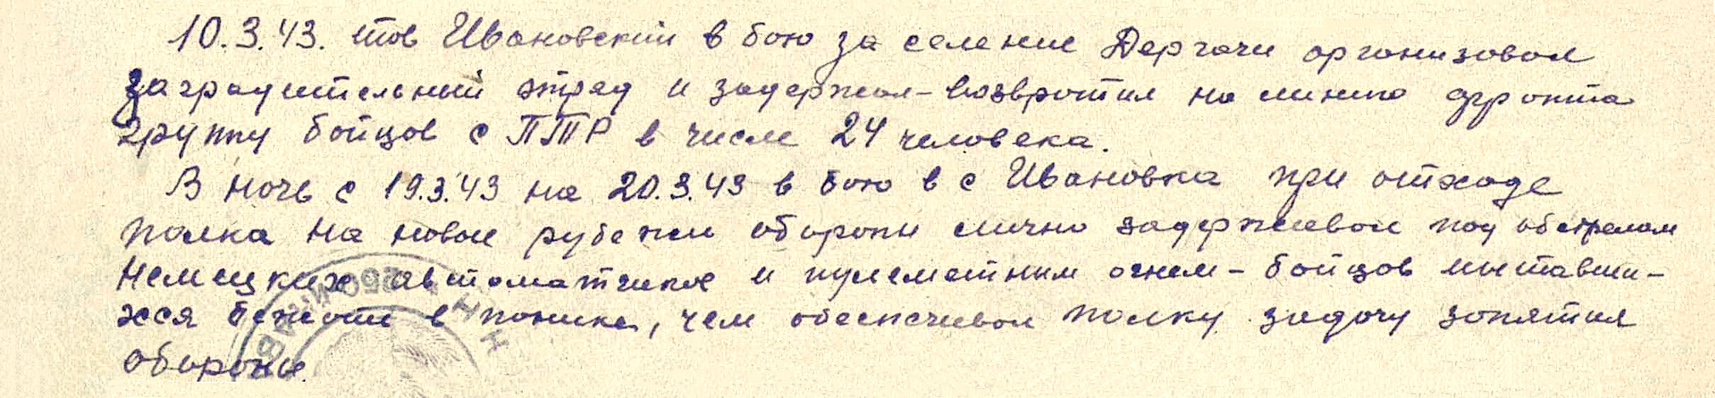 10.3.43. тов Ивановский в бою за селение Дергачи организовал
заградительный отряд и задержал-возвратил на линию фронта
группу бойцов с ПТР в числе 24 человека.
В ночь с 19.3.43 на 20.3.43 в бою в с Ивановка при отходе
полка на новые рубежи обороны лично задерживал под обстрелом
немецких автоматчиков и пулеметным огнем - бойцов пытавши-
хся бежать в панике, чем обеспечивал полку задачу занятия
обороны.